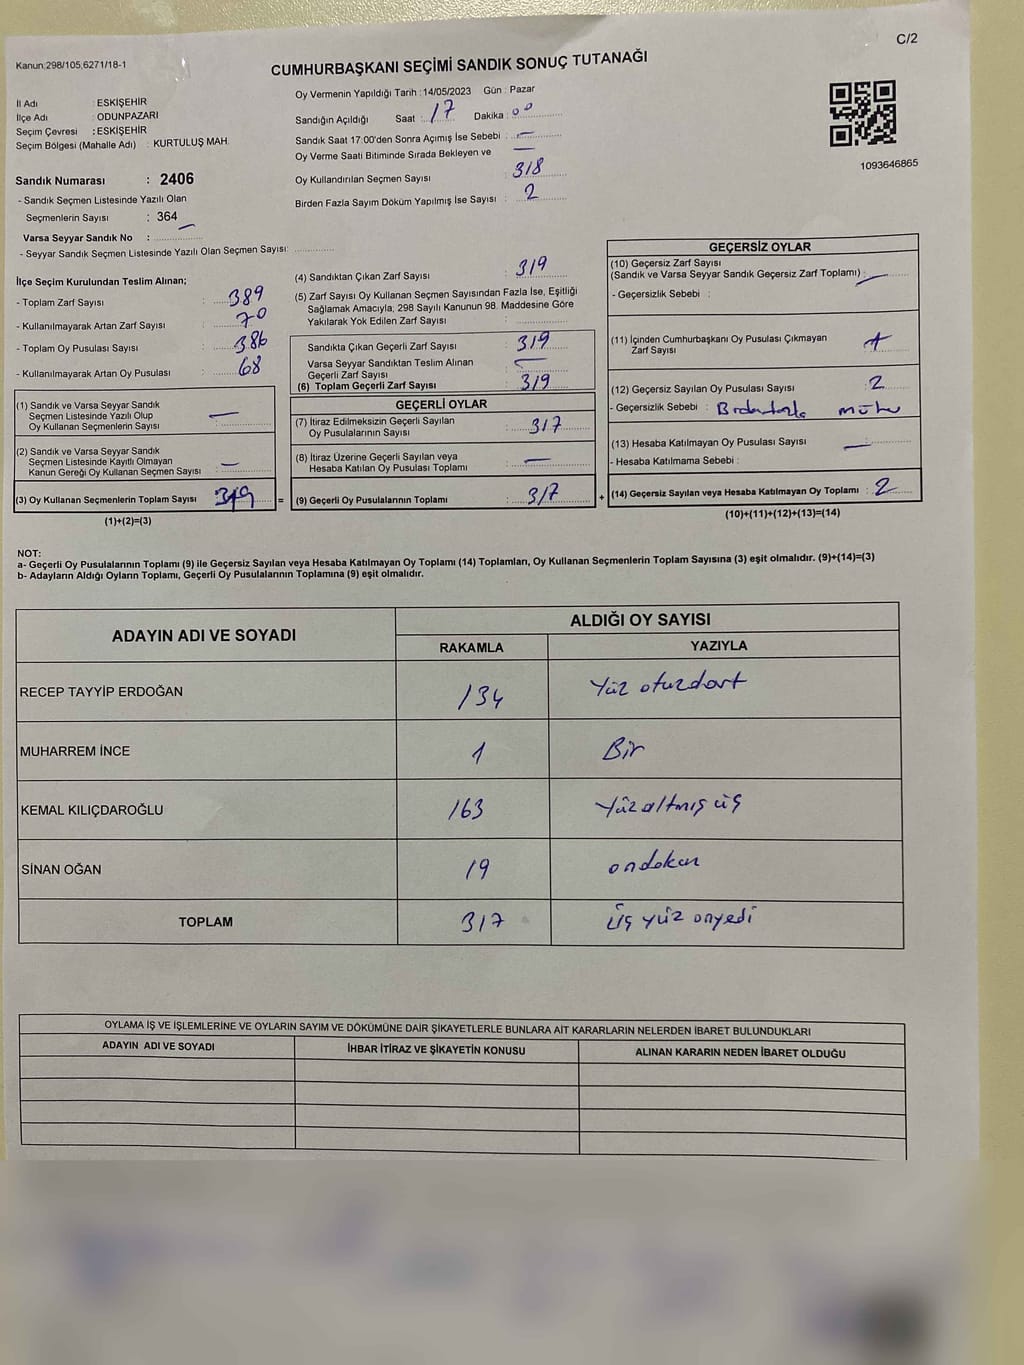 C/2
Kanun:298/105,6271/18-1
CUMHURBAŞKANI SEÇİMİ SANDIK SONUÇ TUTANAĞI
İl Adı : ESKİŞEHİR
İlçe Adı : ODUNPAZARI
Seçim Çevresi : ESKİŞEHİR
Seçim Bölgesi (Mahalle Adı) : KURTULUŞ MAH.
Sandık Numarası : 2406
- Sandık Seçmen Listesinde Yazılı Olan
Seçmenlerin Sayısı : 364
Varsa Seyyar Sandık No :
- Seyyar Sandık Seçmen Listesinde Yazılı Olan Seçmen Sayısı:
Oy Vermenin Yapıldığı Tarih : 14/05/2023 Gün : Pazar
Sandığın Açıldığı Saat : 17 Dakika : 00
Sandık Saat 17:00'den Sonra Açımış İse Sebebi : —
Oy Verme Saati Bitiminde Sırada Bekleyen ve —
Oy Kullandırılan Seçmen Sayısı : 318
Birden Fazla Sayım Döküm Yapılmış İse Sayısı : 2
1093646865
İlçe Seçim Kurulundan Teslim Alınan;
- Toplam Zarf Sayısı : 389
- Kullanılmayarak Artan Zarf Sayısı : 70
- Toplam Oy Pusulası Sayısı : 386
- Kullanılmayarak Artan Oy Pusulası : 68
(1) Sandık ve Varsa Seyyar Sandık
Seçmen Listesinde Yazılı Olup
Oy Kullanan Seçmenlerin Sayısı : —
(2) Sandık ve Varsa Seyyar Sandık
Seçmen Listesinde Kayıtlı Olmayan
Kanun Gereği Oy Kullanan Seçmen Sayısı : —
(3) Oy Kullanan Seçmenlerin Toplam Sayısı 319 =
(1)+(2)=(3)
(4) Sandıktan Çıkan Zarf Sayısı : 319
(5) Zarf Sayısı Oy Kullanan Seçmen Sayısından Fazla İse, Eşitliği
Sağlamak Amacıyla, 298 Sayılı Kanunun 98. Maddesine Göre
Yakılarak Yok Edilen Zarf Sayısı :
Sandıkta Çıkan Geçerli Zarf Sayısı : 319
Varsa Seyyar Sandıktan Teslim Alınan
Geçerli Zarf Sayısı : —
(6) Toplam Geçerli Zarf Sayısı : 319
GEÇERLİ OYLAR
(7) İtiraz Edilmeksizin Geçerli Sayılan
Oy Pusulalarının Sayısı : 317
(8) İtiraz Üzerine Geçerli Sayılan veya
Hesaba Katılan Oy Pusulası Toplamı : —
(9) Geçerli Oy Pusulalarının Toplamı : 317 +
GEÇERSİZ OYLAR
(10) Geçersiz Zarf Sayısı
(Sandık ve Varsa Seyyar Sandık Geçersiz Zarf Toplamı) : —
- Geçersizlik Sebebi :
(11) İçinden Cumhurbaşkanı Oy Pusulası Çıkmayan
Zarf Sayısı :
(12) Geçersiz Sayılan Oy Pusulası Sayısı : 2
- Geçersizlik Sebebi : mühür
(13) Hesaba Katılmayan Oy Pusulası Sayısı : —
- Hesaba Katılmama Sebebi :
(14) Geçersiz Sayılan veya Hesaba Katılmayan Oy Toplamı : 2
(10)+(11)+(12)+(13)=(14)
NOT:
a- Geçerli Oy Pusulalarının Toplamı (9) ile Geçersiz Sayılan veya Hesaba Katılmayan Oy Toplamı (14) Toplamları, Oy Kullanan Seçmenlerin Toplam Sayısına (3) eşit olmalıdır. (9)+(14)=(3)
b- Adayların Aldığı Oyların Toplamı, Geçerli Oy Pusulalarının Toplamına (9) eşit olmalıdır.
ADAYIN ADI VE SOYADI
ALDIĞI OY SAYISI
RAKAMLA YAZIYLA
RECEP TAYYİP ERDOĞAN 134 Yüz otuzdört
MUHARREM İNCE 1 Bir
KEMAL KILIÇDAROĞLU 163 Yüzaltmış üç
SİNAN OĞAN 19 ondokuz
TOPLAM 317 Üç yüz onyedi
OYLAMA İŞ VE İŞLEMLERİNE VE OYLARIN SAYIM VE DÖKÜMÜNE DAİR ŞİKAYETLERLE BUNLARA AİT KARARLARIN NELERDEN İBARET BULUNDUKLARI
ADAYIN ADI VE SOYADI İHBAR İTİRAZ VE ŞİKAYETİN KONUSU ALINAN KARARIN NEDEN İBARET OLDUĞU